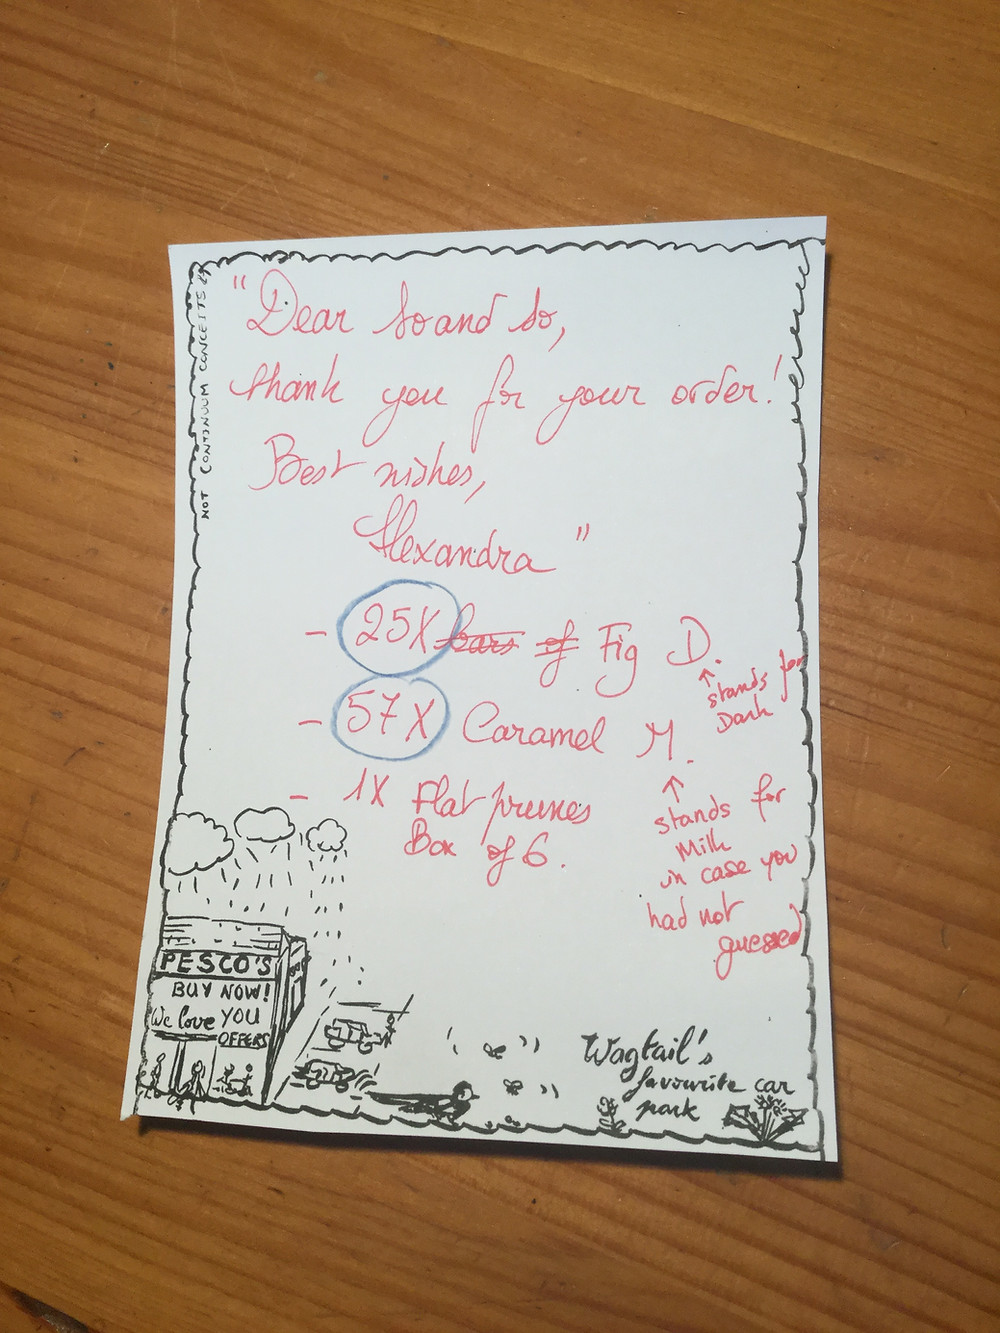 NOT CONTINUUM CONCEITS
"Dear So and So,
thank you for your order!
Best wishes,
Alexandra"
- 25X bars of Fig D.
stands for
Dark
- 57X Caramel M.
stands for
Milk
in case you
had not
guessed
- 1X Flat prunes
Box of 6.
PESCO'S
BUY NOW!
We love YOU
OFFERS
Wagtail's
favourite car
park